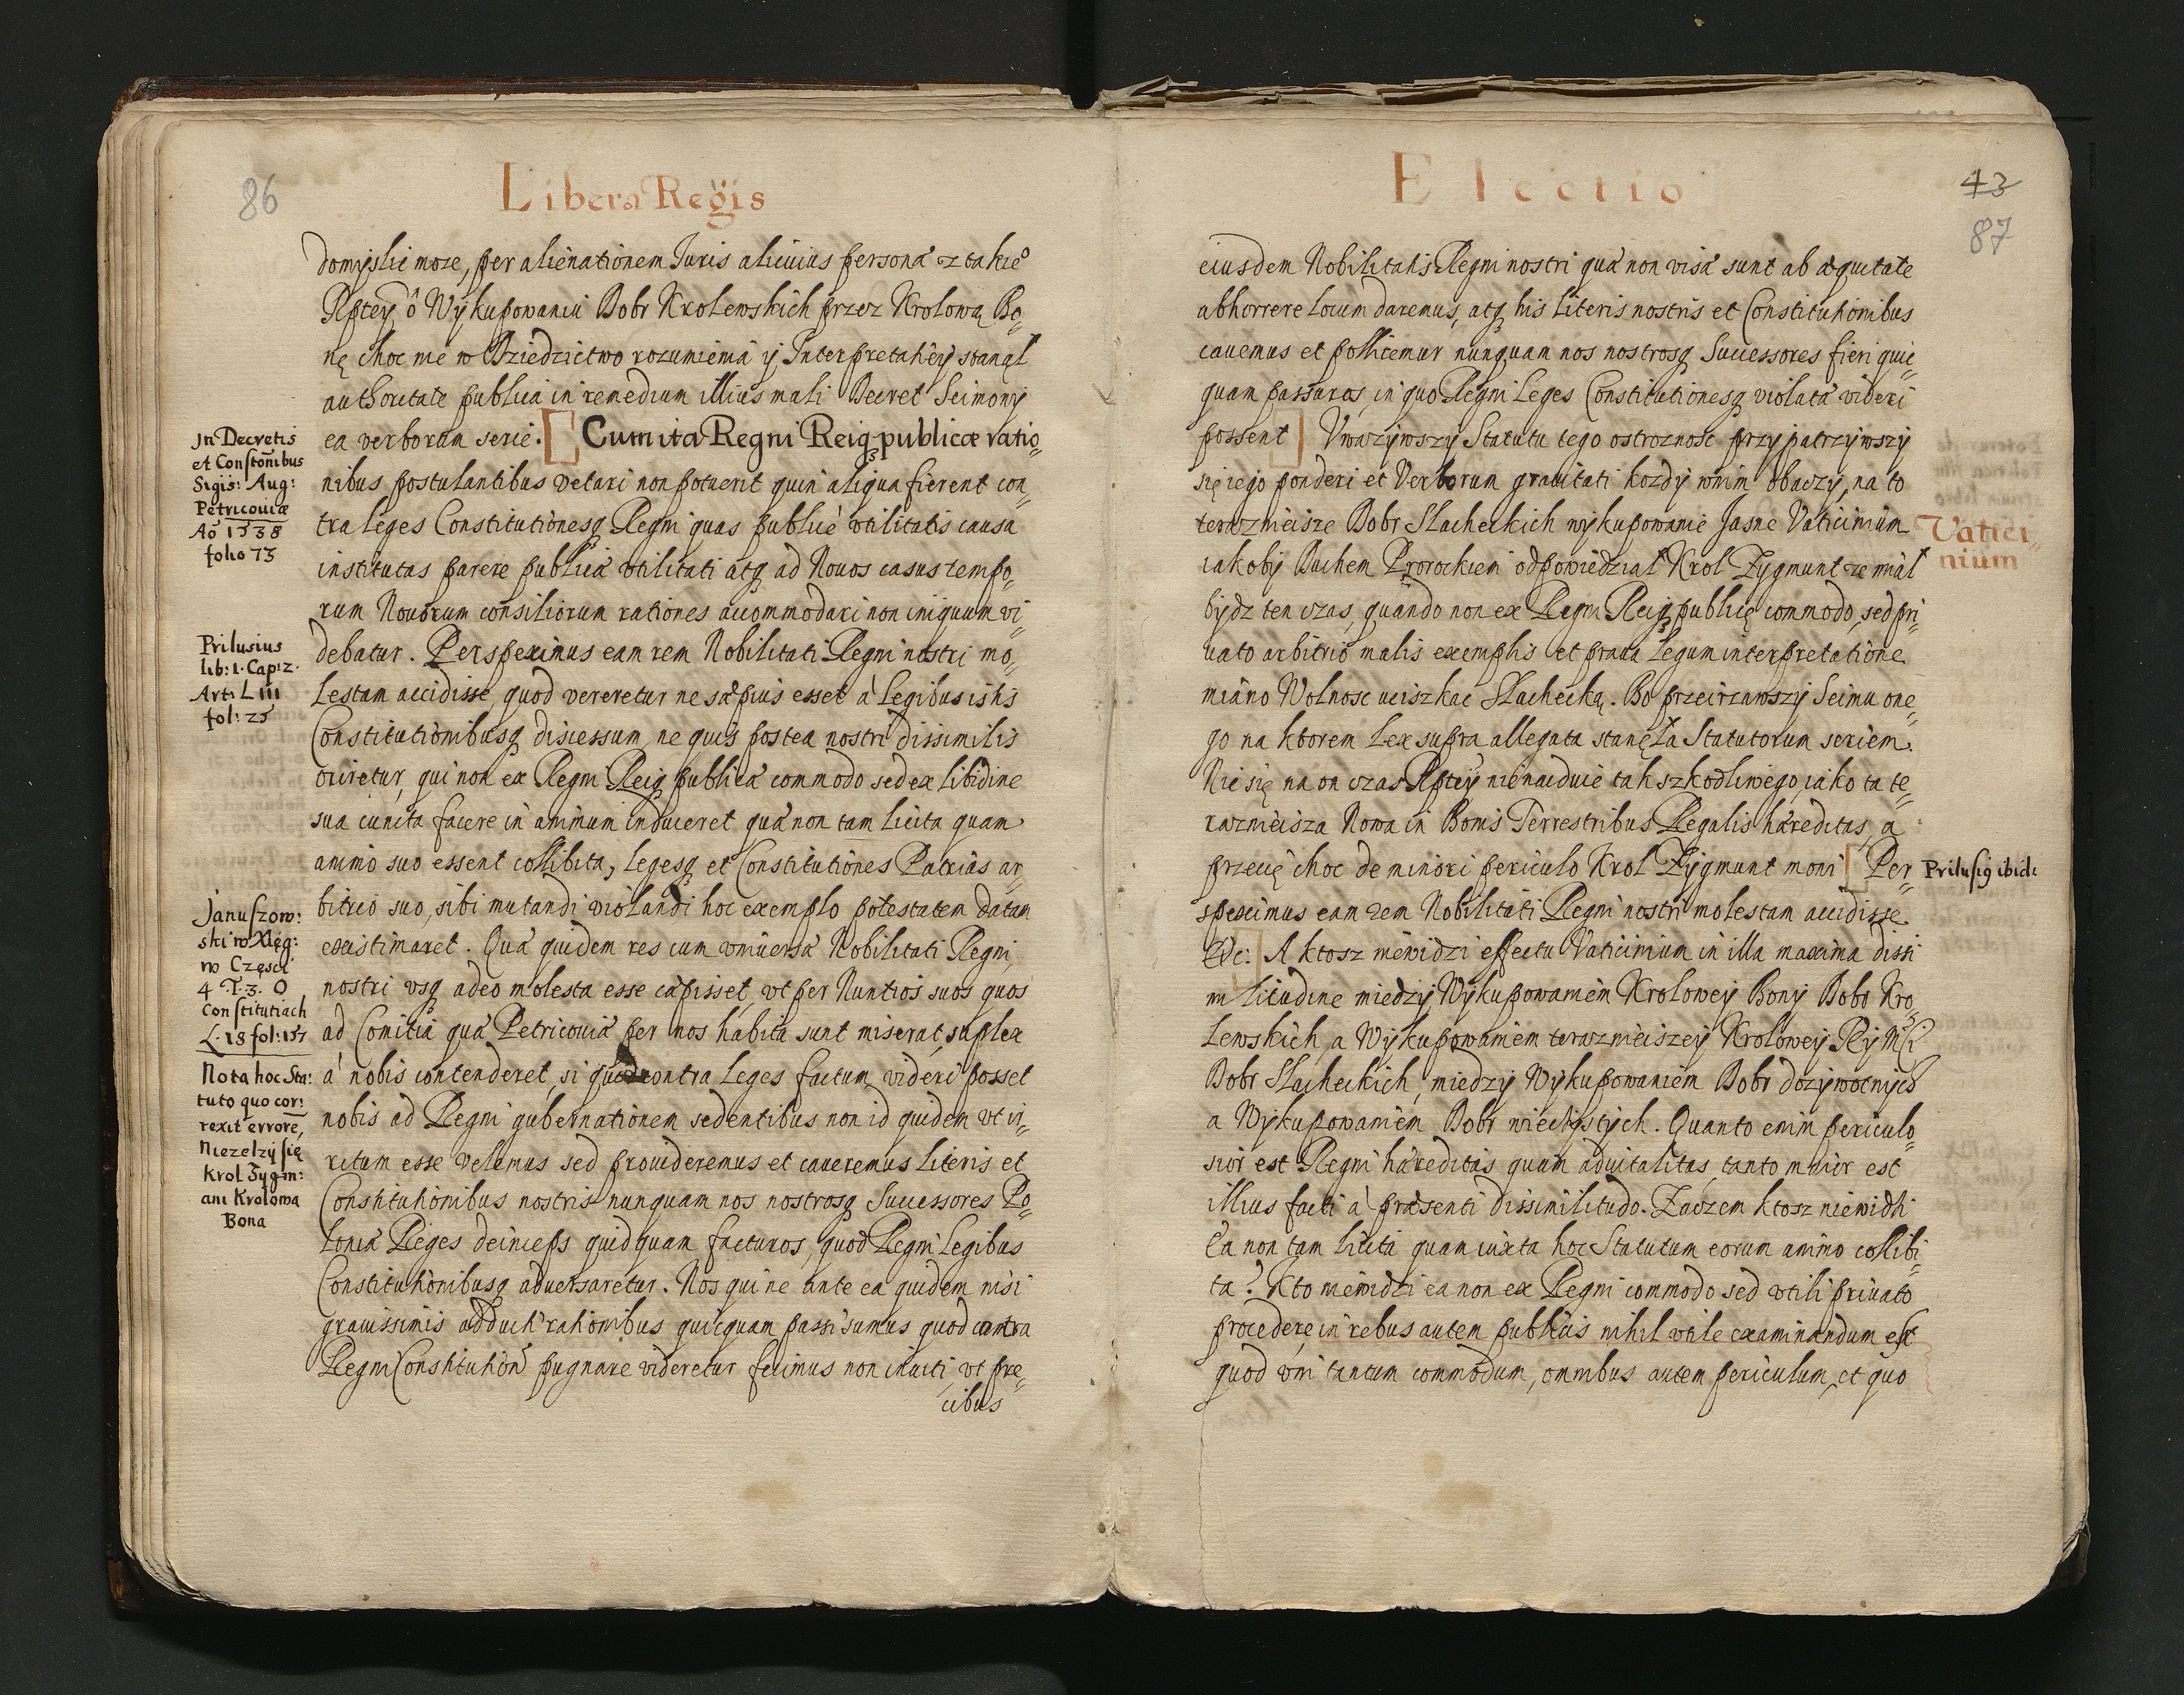 86
Libera Regis
domyslic moze, per alienationem Iuris alicuius persona z takie°
Rptey ô Wykupowaniu Dobr Krolewskich przez Krolową Bo„
nę choc nie w Dziedzictwo rozumiemá y Interpretatiey stanął
authoritate publica in remedium illius mali Decret Seimowy
ea verborum serie. [ Cum ita Regni Reiq₃ publicæ ratio„
nibus postulantibus vetari non potuerit quin aliqua fierent con„
tra leges Constitutionesq₃ Regni quas publicè vtilitatis causa
institutas parere publicá vtilitati atq₃ ad Nouos casus tempo„
rum Nouorum consiliorum rationes accommodari non iniquum vi„
debatur. Perspeximus eam rem Nobilitati Regni nostri mo„
lestam accidisse, quod vereretur ne sápius esset à Legibus ishis
Constitutionibusq₃ discessum, ne quis postea nostri dissimilis
oriretur, qui non ex Regni Reiq₃ publicá commodo sed ex libidine
sua cuncta facere in animum induceret quá non tam licita quam
animo suo essent collibita, legesq₃ et Constitutiones Patrias ar„
bitrio suo, sibi mutandi violandi hoc exemplo potestatem datam
existimaret. Quá quidem res cum vniuersá Nobilitati Regni
nostri vsq₃ adeo molesta esse cápisset, vt per Nuntios suos quos
ad Comitia quá Petricouiá per nos habita sunt miserat, suplex
á nobis contenderet, si quid contra leges factum videri posset
nobis ad Regni gubernationem sedentibus non id quidem vt ir„
ritum esse velemus sed prouideremus et caueremus literis et
Constitutionibus nostris nunquam nos nostrosq₃ Successores Po„
loniá Reges deinceps quidquam facturos, quod Regni legibus
Constitutionibusq₃ aduersaretur. Nos qui ne ante ea quidem nisi
grauissimis adducti rationibus quicquam passi sumus quod contra
Regni Constitution̄ pugnare videretur fecimus non inuiti, vt pre„
cibus
In Decretis
et Constōnibus
Sigis: Aug:
Petricouiæ
Aō 1538
folio 73
Prilusius
lib: 1. Cap: 2.
Art: LIII
fol: 25
Januszow:
ski w Xięg:
w Częsci
4 T. 3. O
Constitutiach
L. 18 fol: 157
Nota hoc Sta:
tuto quo cor:
rexit errorē,
Niezelzy się
Krol Zygm:
ani Krolowa
Bona
Electio
43
87
eiusdem Nobilitatis Regni nostri quá non visá sunt ab æquitate
abhorrere locum daremus, atq₃ his literis nostris et Constitutionibus
cauemus et pollicemur nunquam nos nostrosq₃ Successores fieri quic„
quam passuros, in quo Regni Leges Constitutionesq₃ violatá videri
possent ] Vwazywszy Statutu tego ostroznosc przypatrzywszy
się iego ponderi et Verborum grauitati kozdy w nim obaczy, na to
terazmeisze Dobr Slacheckich wykupowanie Jasne Vaticinium
iakoby Duchem Prorockiem odpowiedział Krol Zygmunt ze miał
bydz ten czas, quando non ex Regni Reiq₃ publicę commodo, sed pri„
uato arbitrio malis exemplis et praua Legum interpretatione
miáno Wolnosc uciszkac Slachecką. Bo przeirzawszy Seimu one„
go na ktorem Lex supra allegata stanęła Statutorum seriem.
Nie się na on czas Rptey nienaiduie tak szkodliwego, iako ta te„
razmeisza Nowa in Bonis Terrestribus Regalis háreditas, a
przecię choc de minori periculo Krol Zygmunt moni [ Per„
speximus eam rem Nobilitati Regni nostri molestam accidisse.
&c: ] A ktosz niewidzi effectu Vaticinium in illa maxima dissi
militudine miedzy Wykupowaniem Krolowey Bony Dobr Kro„
lewskich, a Wykupowaniem terazmeiszey Krolowey Ey Mci
Dobr Slacheckich, miedzy Wykupowaniem Dobr dozywotnych
a Wykupowaniem Dobr wieczystych. Quanto enim periculo„
sior est Regni háreditas quam aduitalitas, tanto maior est
illius facti á præsenti dissimilitudo. Zaczem ktosz niewidzi
Ea non tam licita quam iuxta hoc Statutum eorum animo collibi„
ta? Kto niewidzi ea non ex Regni commodo sed vtili priuato
procedere, in rebus autem publicis nihil vtile examinandum est
quod vni tantum commodum, omnibus autem periculum, et quo
Vatici„
nium
Prilusi9 ibid: